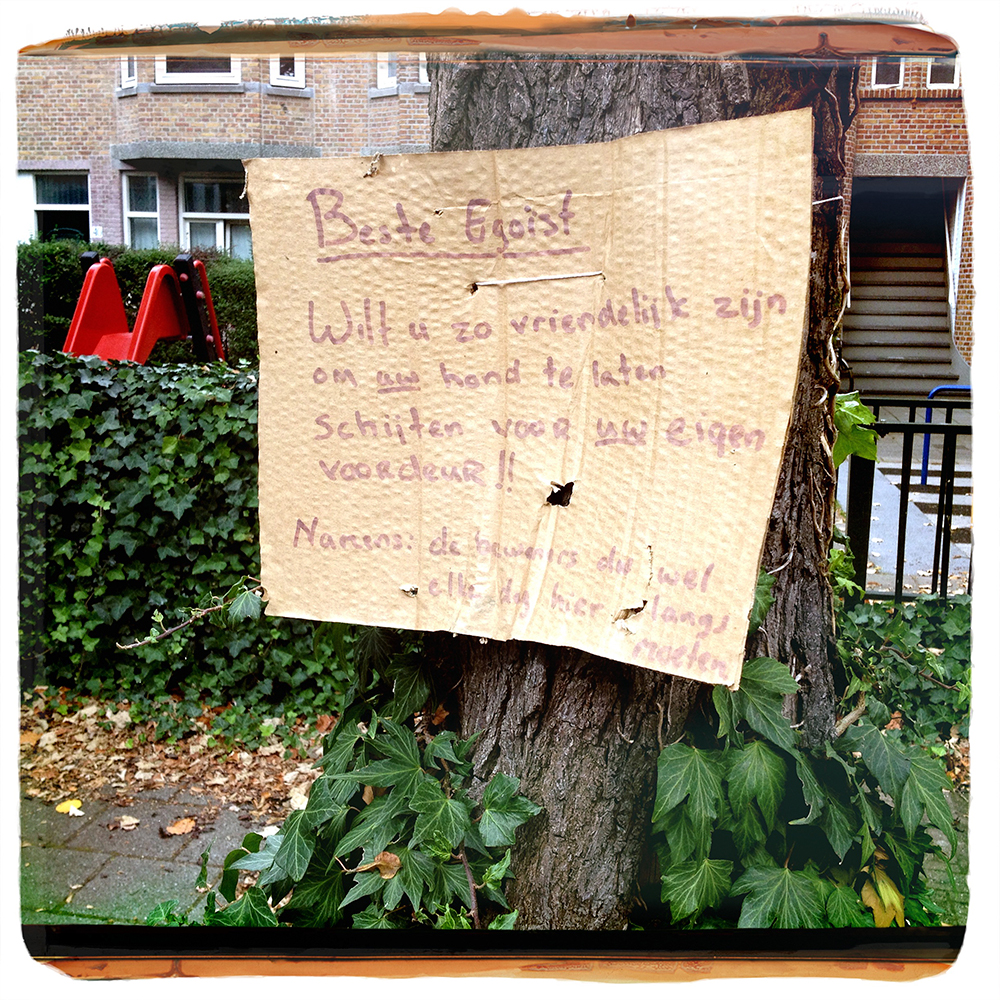 Beste Egoist
Wilt u zo vriendelijk zijn
om uw hond te laten
schijten voor uw eigen
voordeur!!
Namens: de bewoners die wel
elke dag hier langs
moeten